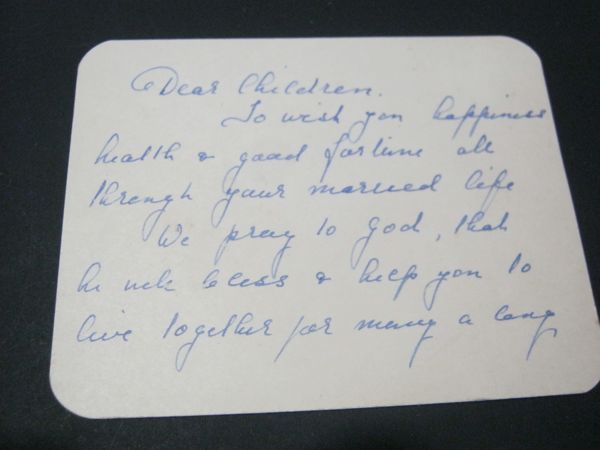 Dear Children.
To wish you happiness
health & good fortune all
through your married life
We pray to god, that
he will bless & help you to
live together for many a long